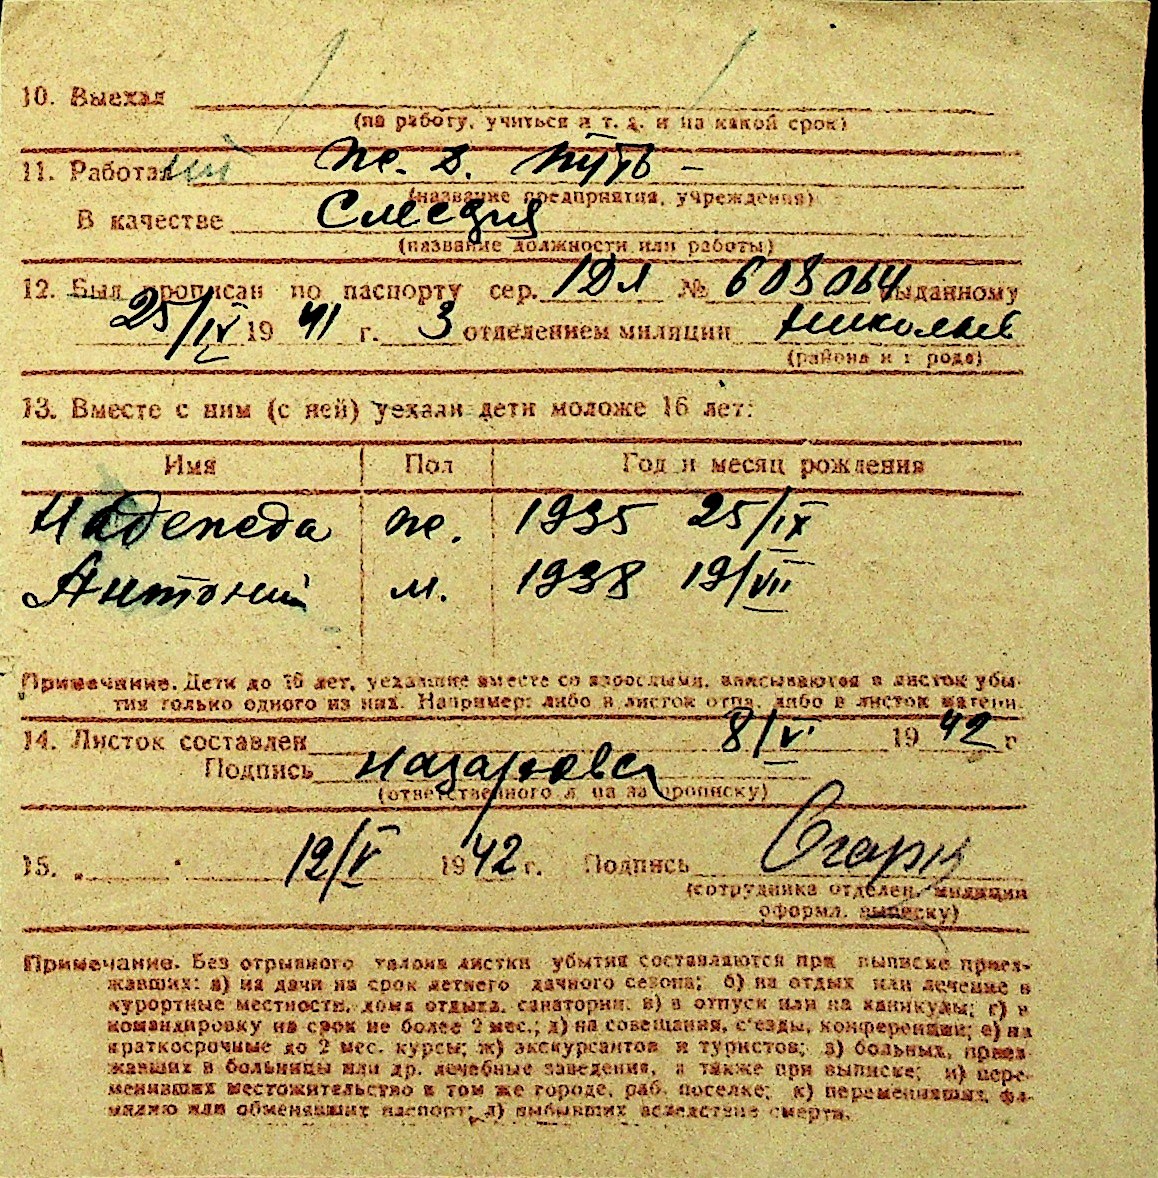 10. Выехал
(на работу, учиться и т. д. и на какой срок)
11. Работал ж. д. путь -
(название предприятия, учреждения)
В качестве
(название должности или работы)
12. Был прописан по паспорту сер. №608064 выданному
25/IV 1941 г. 3 отделением милиции Николаев
(района и города)
13. Вместе с ним (с ней) уехали дети моложе 16 лет:
Имя Пол Год и месяц рождения
Надежда ж. 1935 25/IX
Антоний м. 1938 19/VII
Примечание. Дети до 16 лет, уехавшие вместе со взрослыми, вписываются в листок убы-
тия только одного из них. Например: либо в листок отца, либо в листок матери.
14. Листок составлен 8/V 1942 г
Подпись Назарова
(ответственного лица за прописку)
15. „ " 12/V 1942 г. Подпись
(сотрудника отделен. милиции
оформл. выписку)
Примечание. Без отрывного талона листки убытия составляются при выписке приез-
жавших: а) на дачи на срок летнего дачного сезона; б) на отдых или лечение в
курортные местности, дома отдыха, санатории; в) в отпуск или на каникулы; г) в
командировку на срок не более 2 мес.; д) на совещания, с'езды, конференции; е) на
краткосрочные до 2 мес. курсы; ж) экскурсантов и туристов; з) больных, приез-
жавших в больницы или др. лечебные заведения, а также при выписке; и) пере-
менивших местожительство в том же городе, раб. поселке; к) переменивших фа-
милию или обменявших паспорт; л) выбывших вследствие смерти.